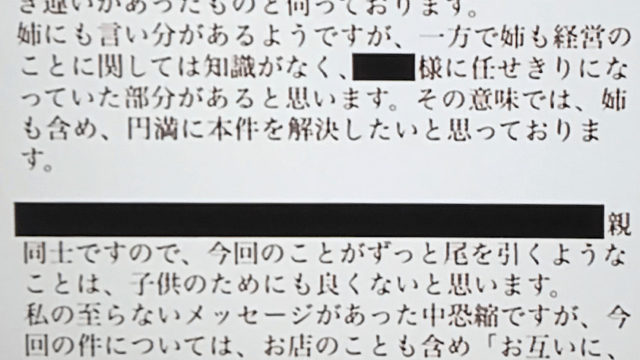 き違いがあったものと伺っております。
姉にも言い分があるようですが、一方で姉も経営の
ことに関しては知識がなく、様に任せきりにな
っていた部分があると思います。その意味では、姉
も含め、円満に本件を解決したいと思っておりま
す。
親
同士ですので、今回のことがずっと尾を引くような
ことは、子供のためにも良くないと思います。
私の至らないメッセージがあった中恐縮ですが、今
回の件については、お店のことも含め「お互いに、